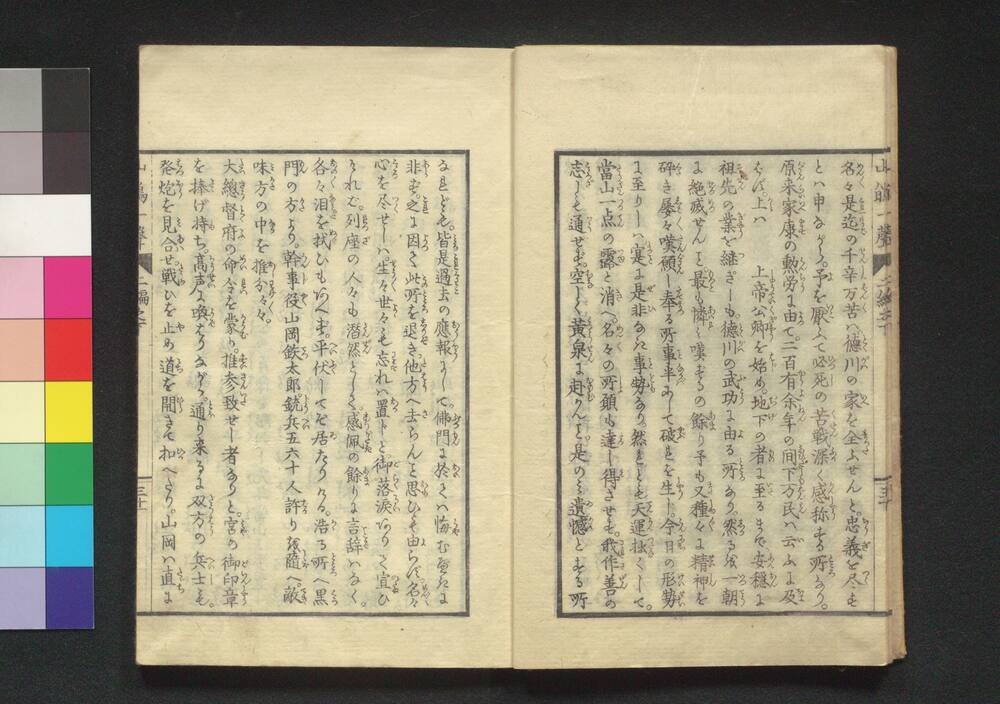 名々是迄の千辛万苦ハ徳川の家を全ふせんと。忠義を尽す
とハ申ながら。予を厭ふて必死の苦戦深く感称する所なり。
原来家康の勲労に由て。二百有余年の間下万民ハ云ふに及
ばず。上ハ　上帝公卿を始め地下の者に至るまで安穏に
祖先の業を継ぎしも徳川の武功に由る所なり。然るを一朝
に絶滅せんとは最も憐み嘆ずるの餘り予も又種々に精神を
砕き屡々嘆願し奉る所事半にして破を生し。今日の形勢
に至りしハ寔に是非なき事勢なり。然れども天運拙くして。
當山一点の露と消へ。名々の所願も達し得させず。我作善の
志しも通せず。空しく黄泉に赴かんこと是のミ遺憾とする所
なれども。皆是過去の應報にして。佛門に於てハ悔む可きに
非ず。之に因て此所を退き。他方へ去らんと思ひも由らず。名々
心を尽せしハ。生々世々にも忘れハ置しと。御落涙ありて宣ひ
されバ。列座の人々も潜然として。感佩の餘りに言辞ハなく。
各々泪を拭ひもあへず。平伏してぞ居たりける。浩る所へ黒
門の方より。幹事役山岡鉄太郎銃兵五六十人許り後隨へ。敵
味方の中を推分々々。
大總督府の命令を蒙り。推参致せし者なりと。宮の御印章
を捧げ持ち。高声に喚はりながら。通り来るに双方の兵士も
発炮を見合せ。戦ひを止め道を開きて扣へたり。山岡ハ直に